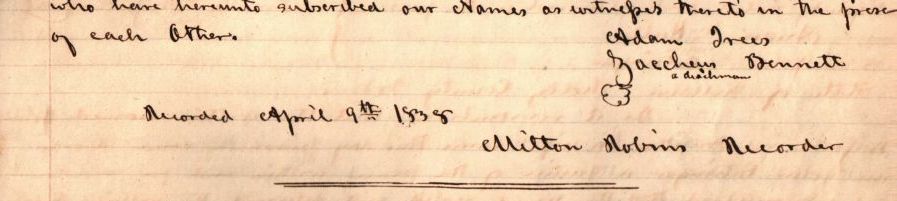 who have hereunto subscribed our Names as witnesses thereto in the prese
of each Other.
Adam Trees
Zaccheus Bennett
a drachman
Recorded April 9th 1838
Milton Robins Recorder